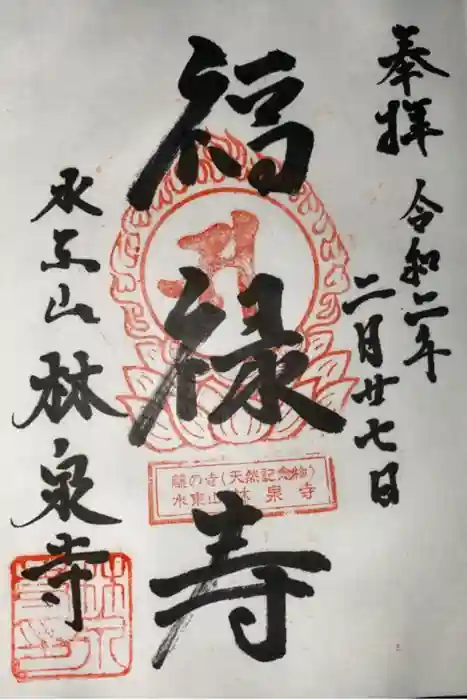 奉拝
令和二年
二月廿七日
福禄寿
藤の寺(天然記念物)
水東山 林泉寺
水东山 林泉寺